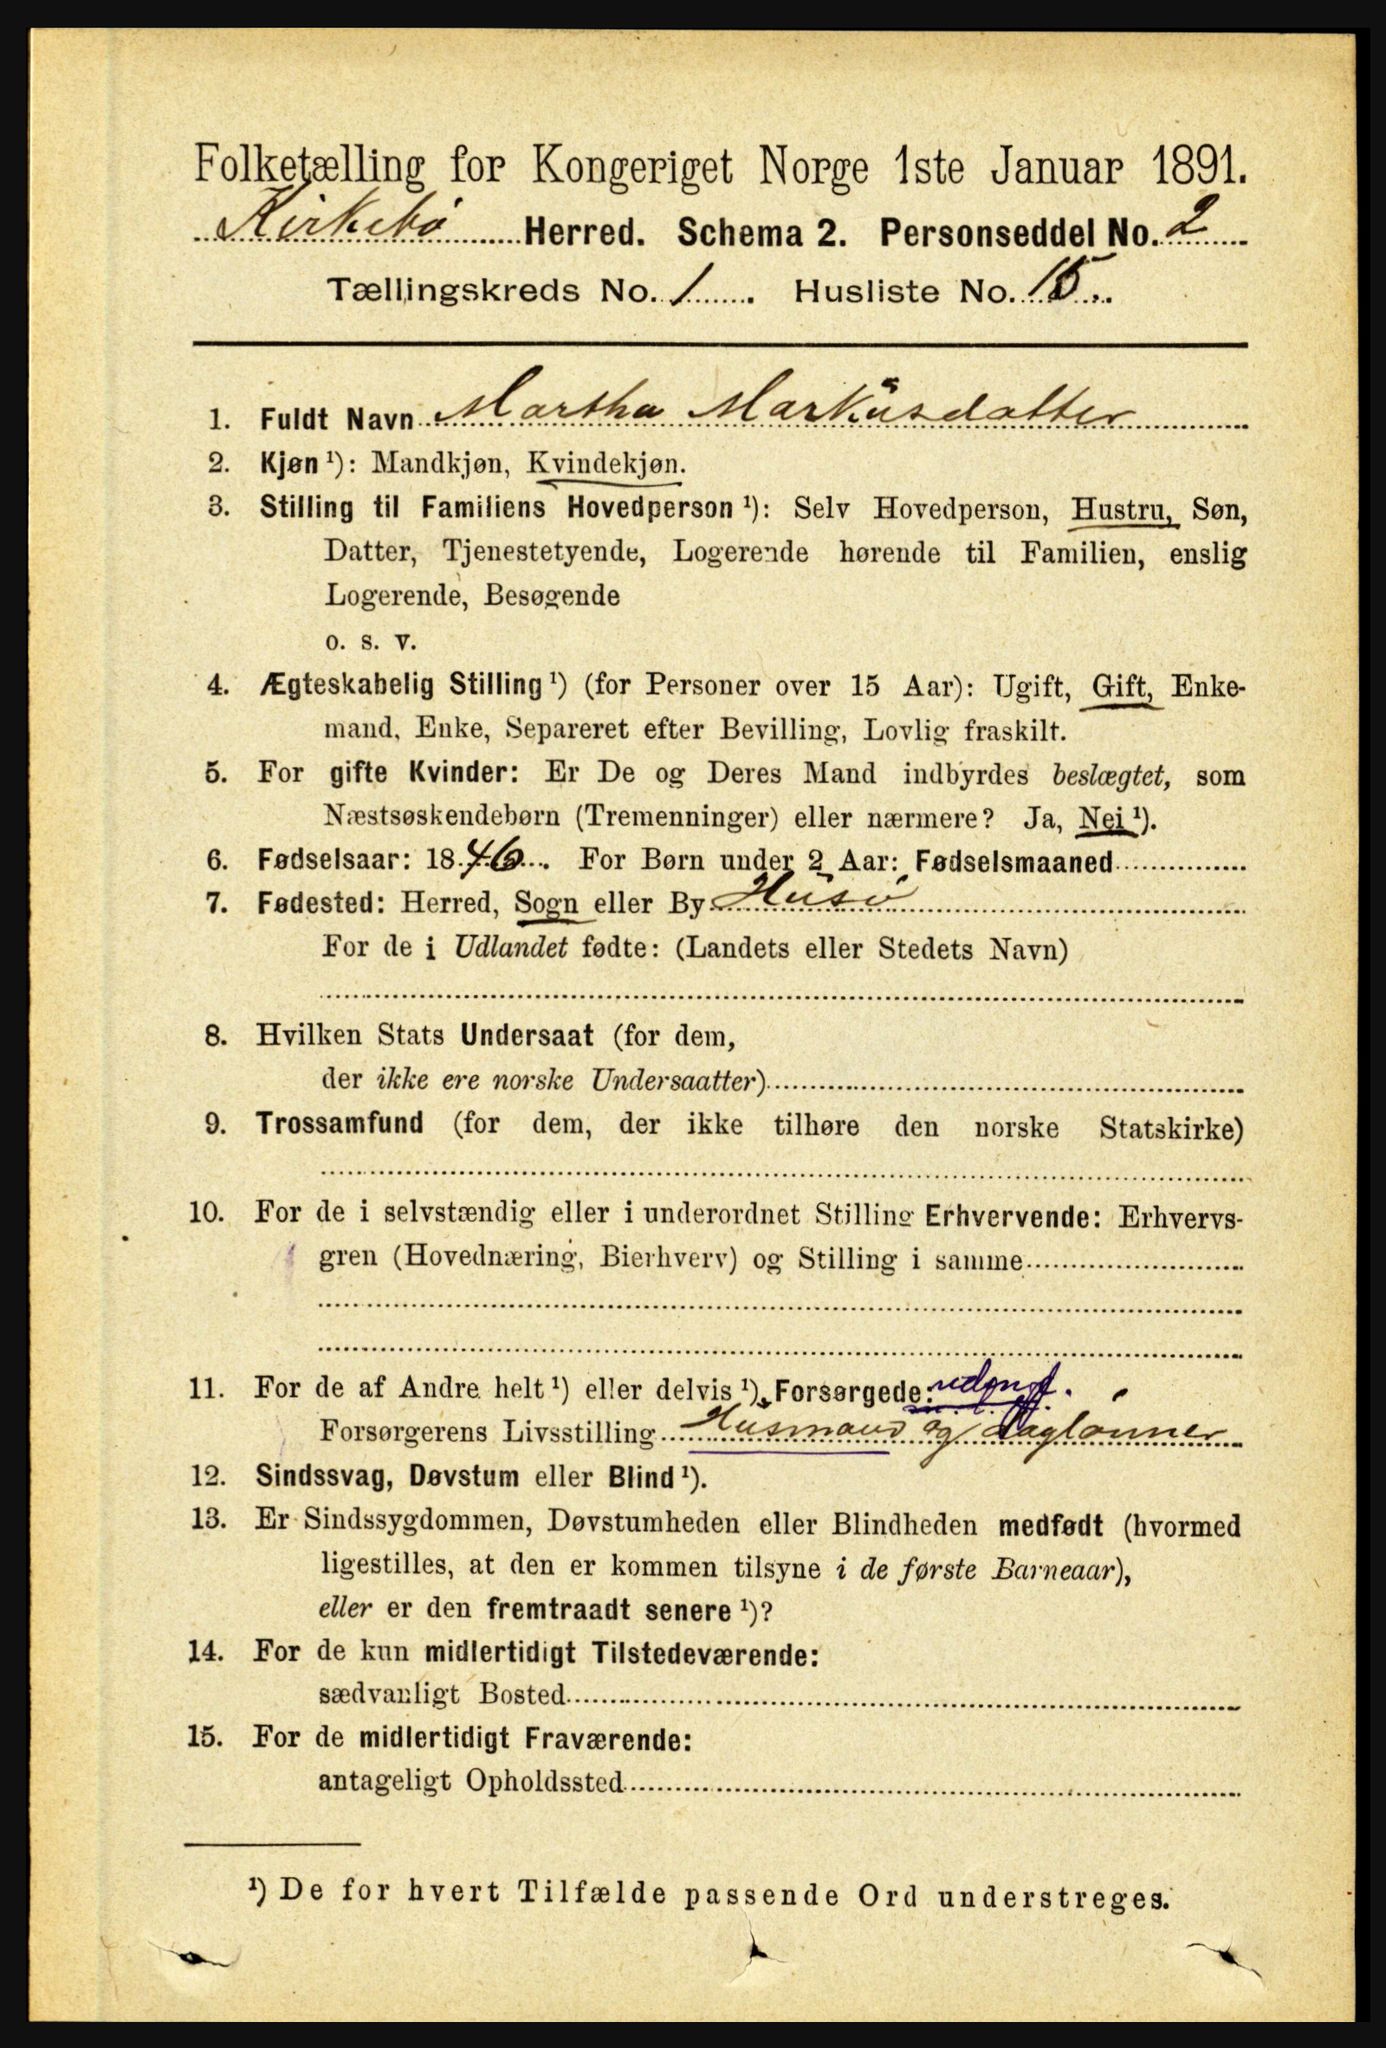 Folketælling for Kongeriget Norge 1ste Januar 1891.
Kirkebø Herred. Schema 2. Personseddel No. 2
Tællingskreds No. 1. Husliste No. 15.
1. Fuldt Navn Martha Markusdatter
2. Kjøn ¹): Mandkjøn, Kvindekjøn.
3. Stilling til Familiens Hovedperson ¹): Selv Hovedperson, Hustru, Søn,
Datter, Tjenestetyende, Logerende hørende til Familien, enslig
Logerende, Besøgende
o. s. v.
4. Ægteskabelig Stilling ¹) (for Personer over 15 Aar): Ugift, Gift, Enke-
mand, Enke, Separeret efter Bevilling, Lovlig fraskilt.
5. For gifte Kvinder: Er De og Deres Mand indbyrdes beslægtet, som
Næstsøskendebørn (Tremenninger) eller nærmere? Ja, Nei ¹).
6. Fødselsaar: 1846. For Børn under 2 Aar: Fødselsmaaned
7. Fødested: Herred, Sogn eller By Husø
For de i Udlandet fødte: (Landets eller Stedets Navn)
8. Hvilken Stats Undersaat (for dem,
der ikke ere norske Undersaatter)
9. Trossamfund (for dem, der ikke tilhøre den norske Statskirke)
10. For de i selvstændig eller i underordnet Stilling Erhvervende: Erhvervs-
gren (Hovednæring, Bierhverv) og Stilling i samme
11. For de af Andre helt ¹) eller delvis ¹) Forsørgede:
Forsørgerens Livsstilling Husmand og Daglønner
12. Sindssvag, Døvstum eller Blind ¹).
13. Er Sindssygdommen, Døvstumheden eller Blindheden medfødt (hvormed
ligestilles, at den er kommen tilsyne i de første Barneaar),
eller er den fremtraadt senere ¹)?
14. For de kun midlertidigt Tilstedeværende:
sædvanligt Bosted
15. For de midlertidigt Fraværende:
antageligt Opholdssted
¹) De for hvert Tilfælde passende Ord understreges.